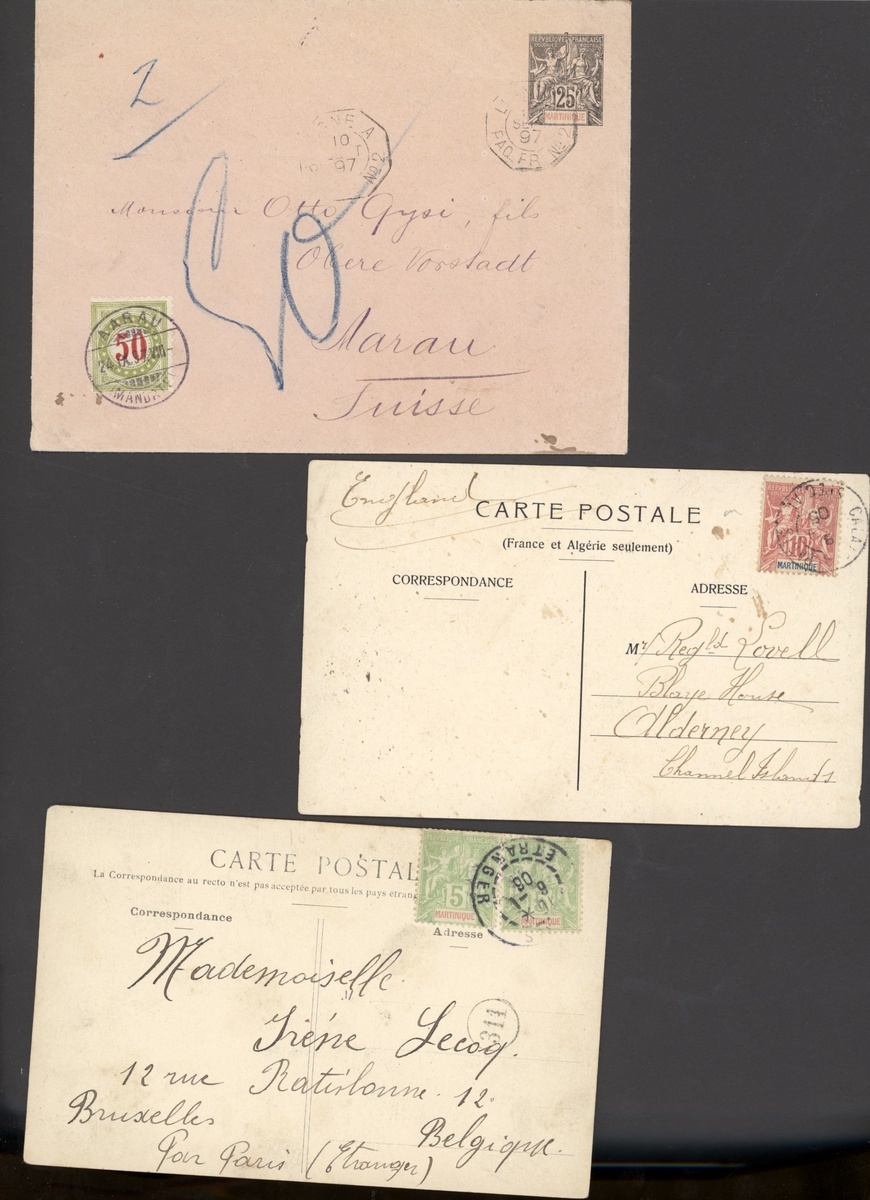 2
REPUBLIQUE FRANCAISE
25
MARTINIQUE
LIGNE A
10
97
PAQ. FR. No 2
97
PAQ. FR. No 2
50
Monsieur Otto Gysi, fils
Obere Vorstadt
Aarau
Suisse
50
AARAU
24. IX. 97. VIII-
(MANDAT)
England
CARTE POSTALE
(France et Algérie seulement)
CORRESPONDANCE
ADRESSE
10
MARTINIQUE
05
Mr Regld Lovell
Blaye House
Alderney
Channel Islands
CARTE POSTALE
La Correspondance au recto n'est pas acceptée par tous les pays étrang
Correspondance
Adresse
5
MARTINIQUE
MARTINIQUE
ETRANGER
08
Mademoiselle
Irène Lecoq.
12 rue Ratisbonne. 12.
Bruxelles
Belgique.
Par Paris (Etranger)
311